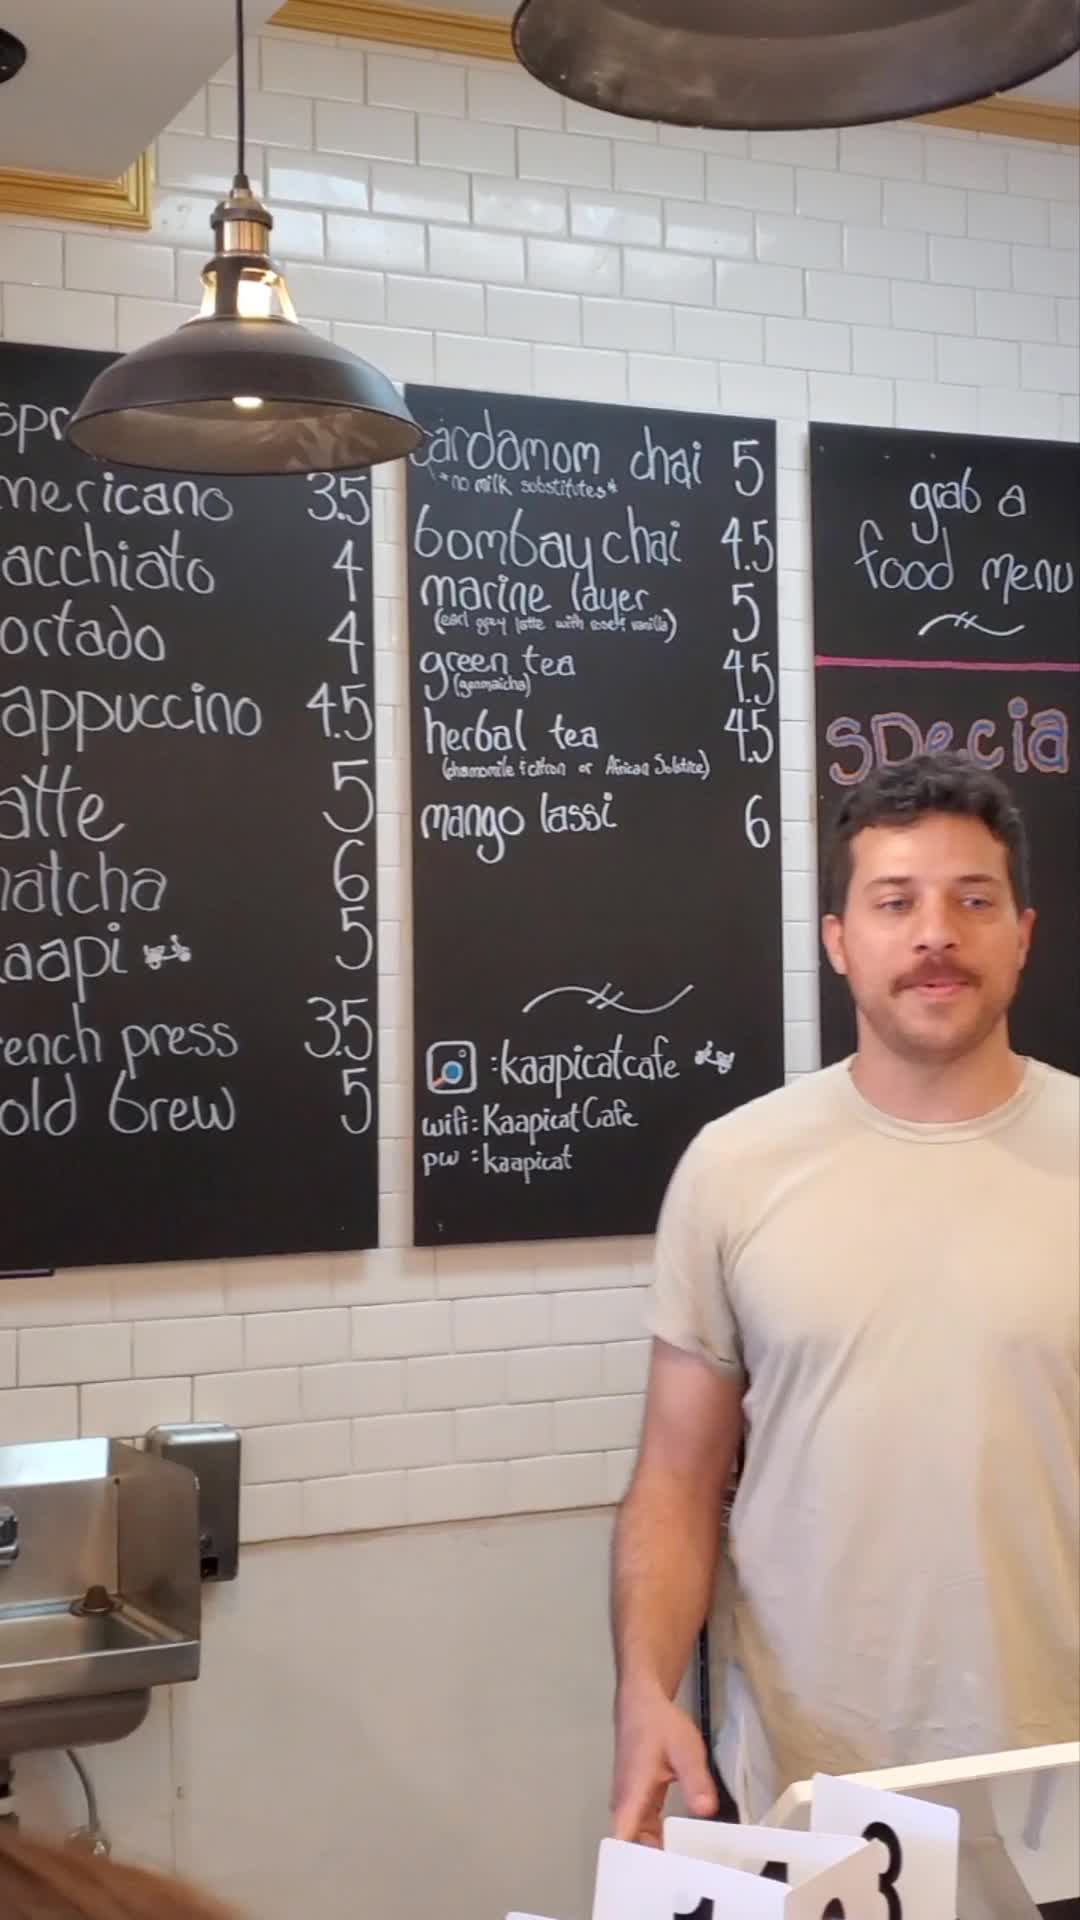 spr
mericano 3.5
acchiato 4
ortado 4
appuccino 4.5
atte 5
matcha 6
aapi 5
rench press 3.5
old brew 5
cardamom chai 5
*no milk substitutes*
bombay chai 4.5
marine layer 5
(earl gray latte with rose & vanilla)
green tea 4.5
(genmaicha)
herbal tea 4.5
(chamomile & citron or African Solstice)
mango lassi 6
:kaapicatcafe
wifi: Kaapicat Cafe
pw: kaapicat
grab a
food menu
specia
3
1